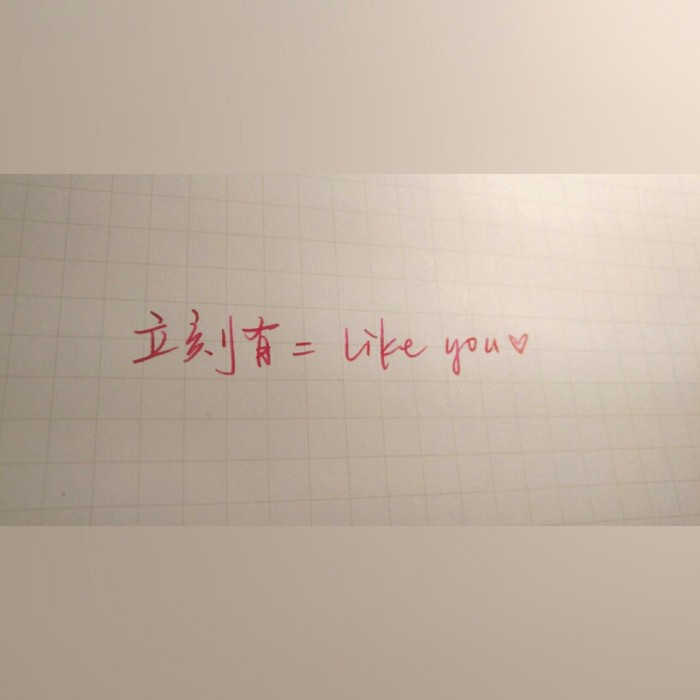 立刻有 = Like you♡